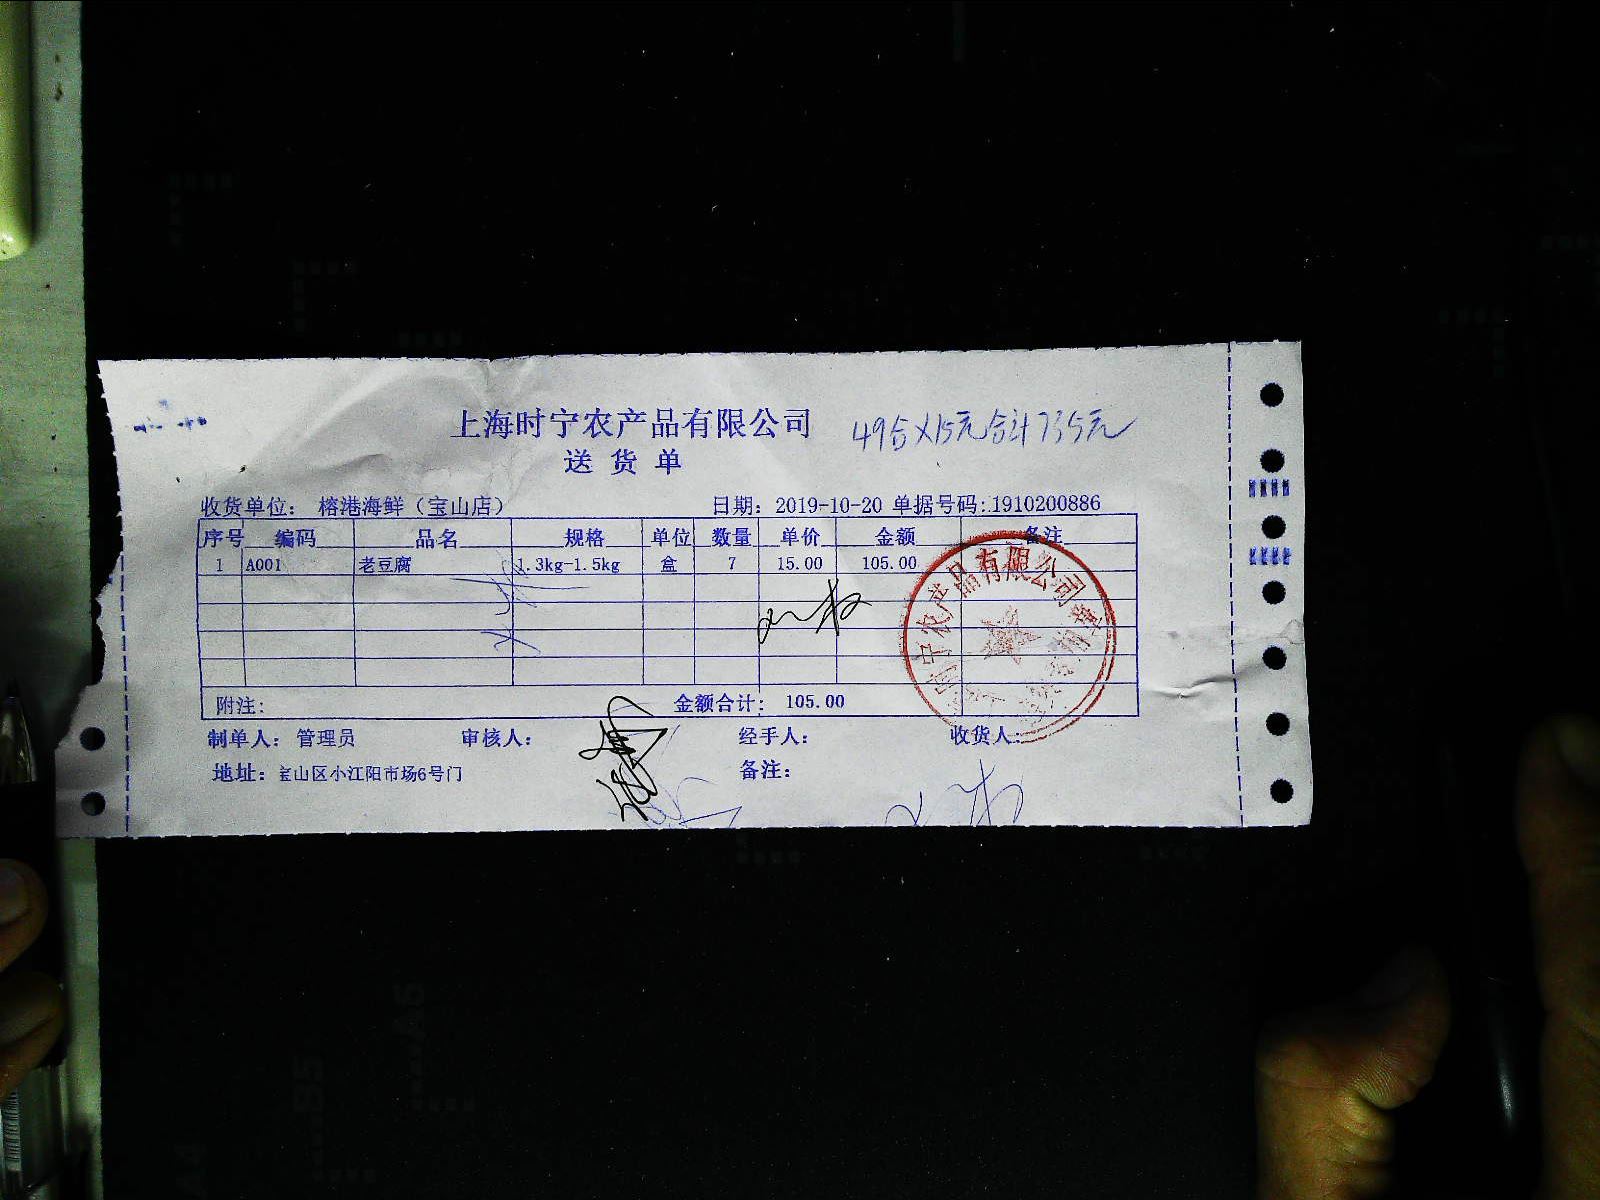 上海时宁农产品有限公司
49合X15元合计735元
送货单
收货单位： 榕港海鲜（宝山店） 日期：2019-10-20 单据号码:1910200886
序号 编码 品名 规格 单位 数量 单价 金额 备注
1 A001 老豆腐 1.3kg-1.5kg 盒 7 15.00 105.00
宁农产品有限公司
附注: 金额合计： 105.00
制单人：管理员 审核人： 经手人： 收货人：
地址：宝山区小江阳市场6号门 备注：